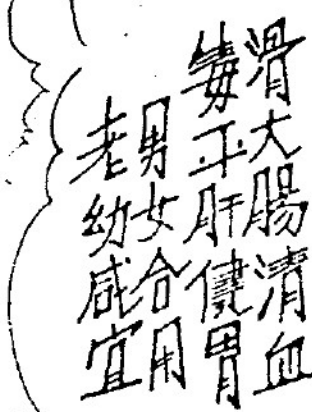 滑大腸清血
毒平肝健胃
男女合用
老幼咸宜